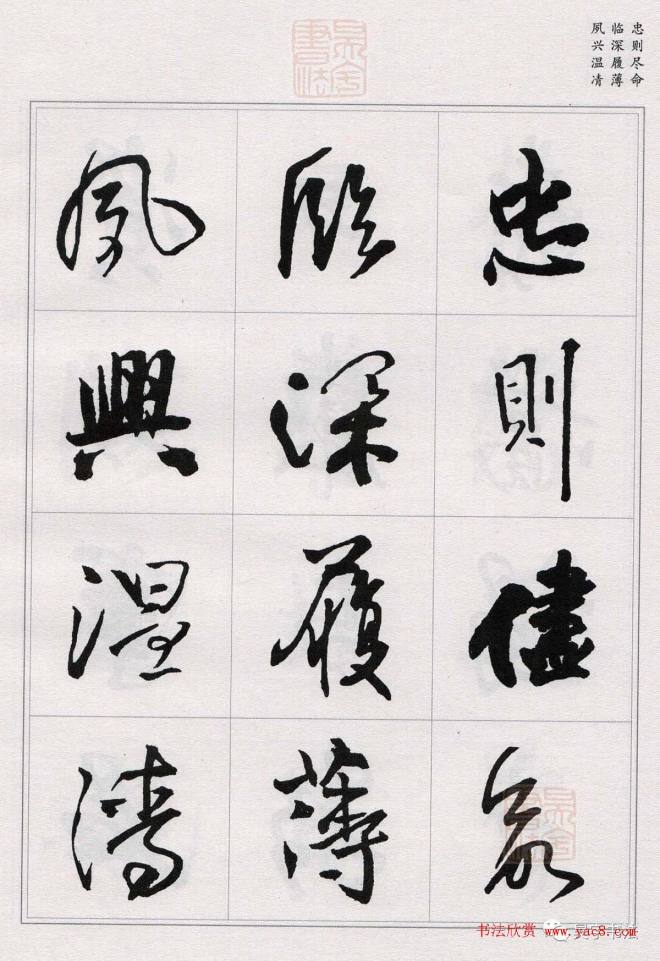 忠则尽命
临深履薄
夙兴温凊
忠則儘命
臨深履薄
夙興温清
书法欣赏 www.yac8.com